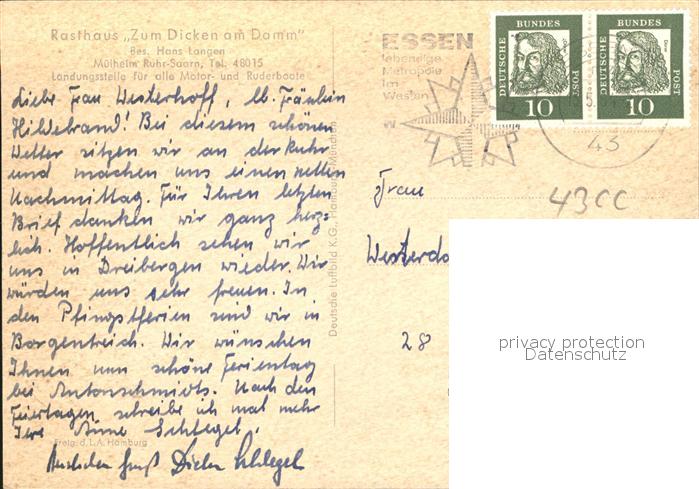 Rasthaus „Zum Dicken am Damm"
Bes. Hans Langen
Mülheim Ruhr-Saarn, Tel. 48015
Landungsstelle für alle Motor- und Ruderboote
Liebe Frau Westerhoff, lb. Fräulein
Hildebrand! Bei diesem schönen
Wetter sitzen wir an der Ruhr
und machen uns einen netten
Nachmittag. Für Ihren letzten
Brief danken wir ganz herz-
lich. Hoffentlich sehen wir
uns in Dreibergen wieder. Wir
würden uns sehr freuen. In
den Pfingstferien sind wir in
Borgentreich. Wir wünschen
Ihnen nun schöne Ferientag
bei Antonschmidts. Nach den
Feiertagen schreibe ich mal mehr
Ihre Anne Schlegel.
Freig. d. L.A. Hamburg
Herzlichen Gruß Dieter Schlegel
Deutsche Luftbild K.G., Hamburg München
ESSEN
lebendige
Metropole
im
Westen
DEUTSCHE BUNDESPOST
10
DEUTSCHE BUNDESPOST
10
43
43CC
Frau
28
privacy protection
Datenschutz